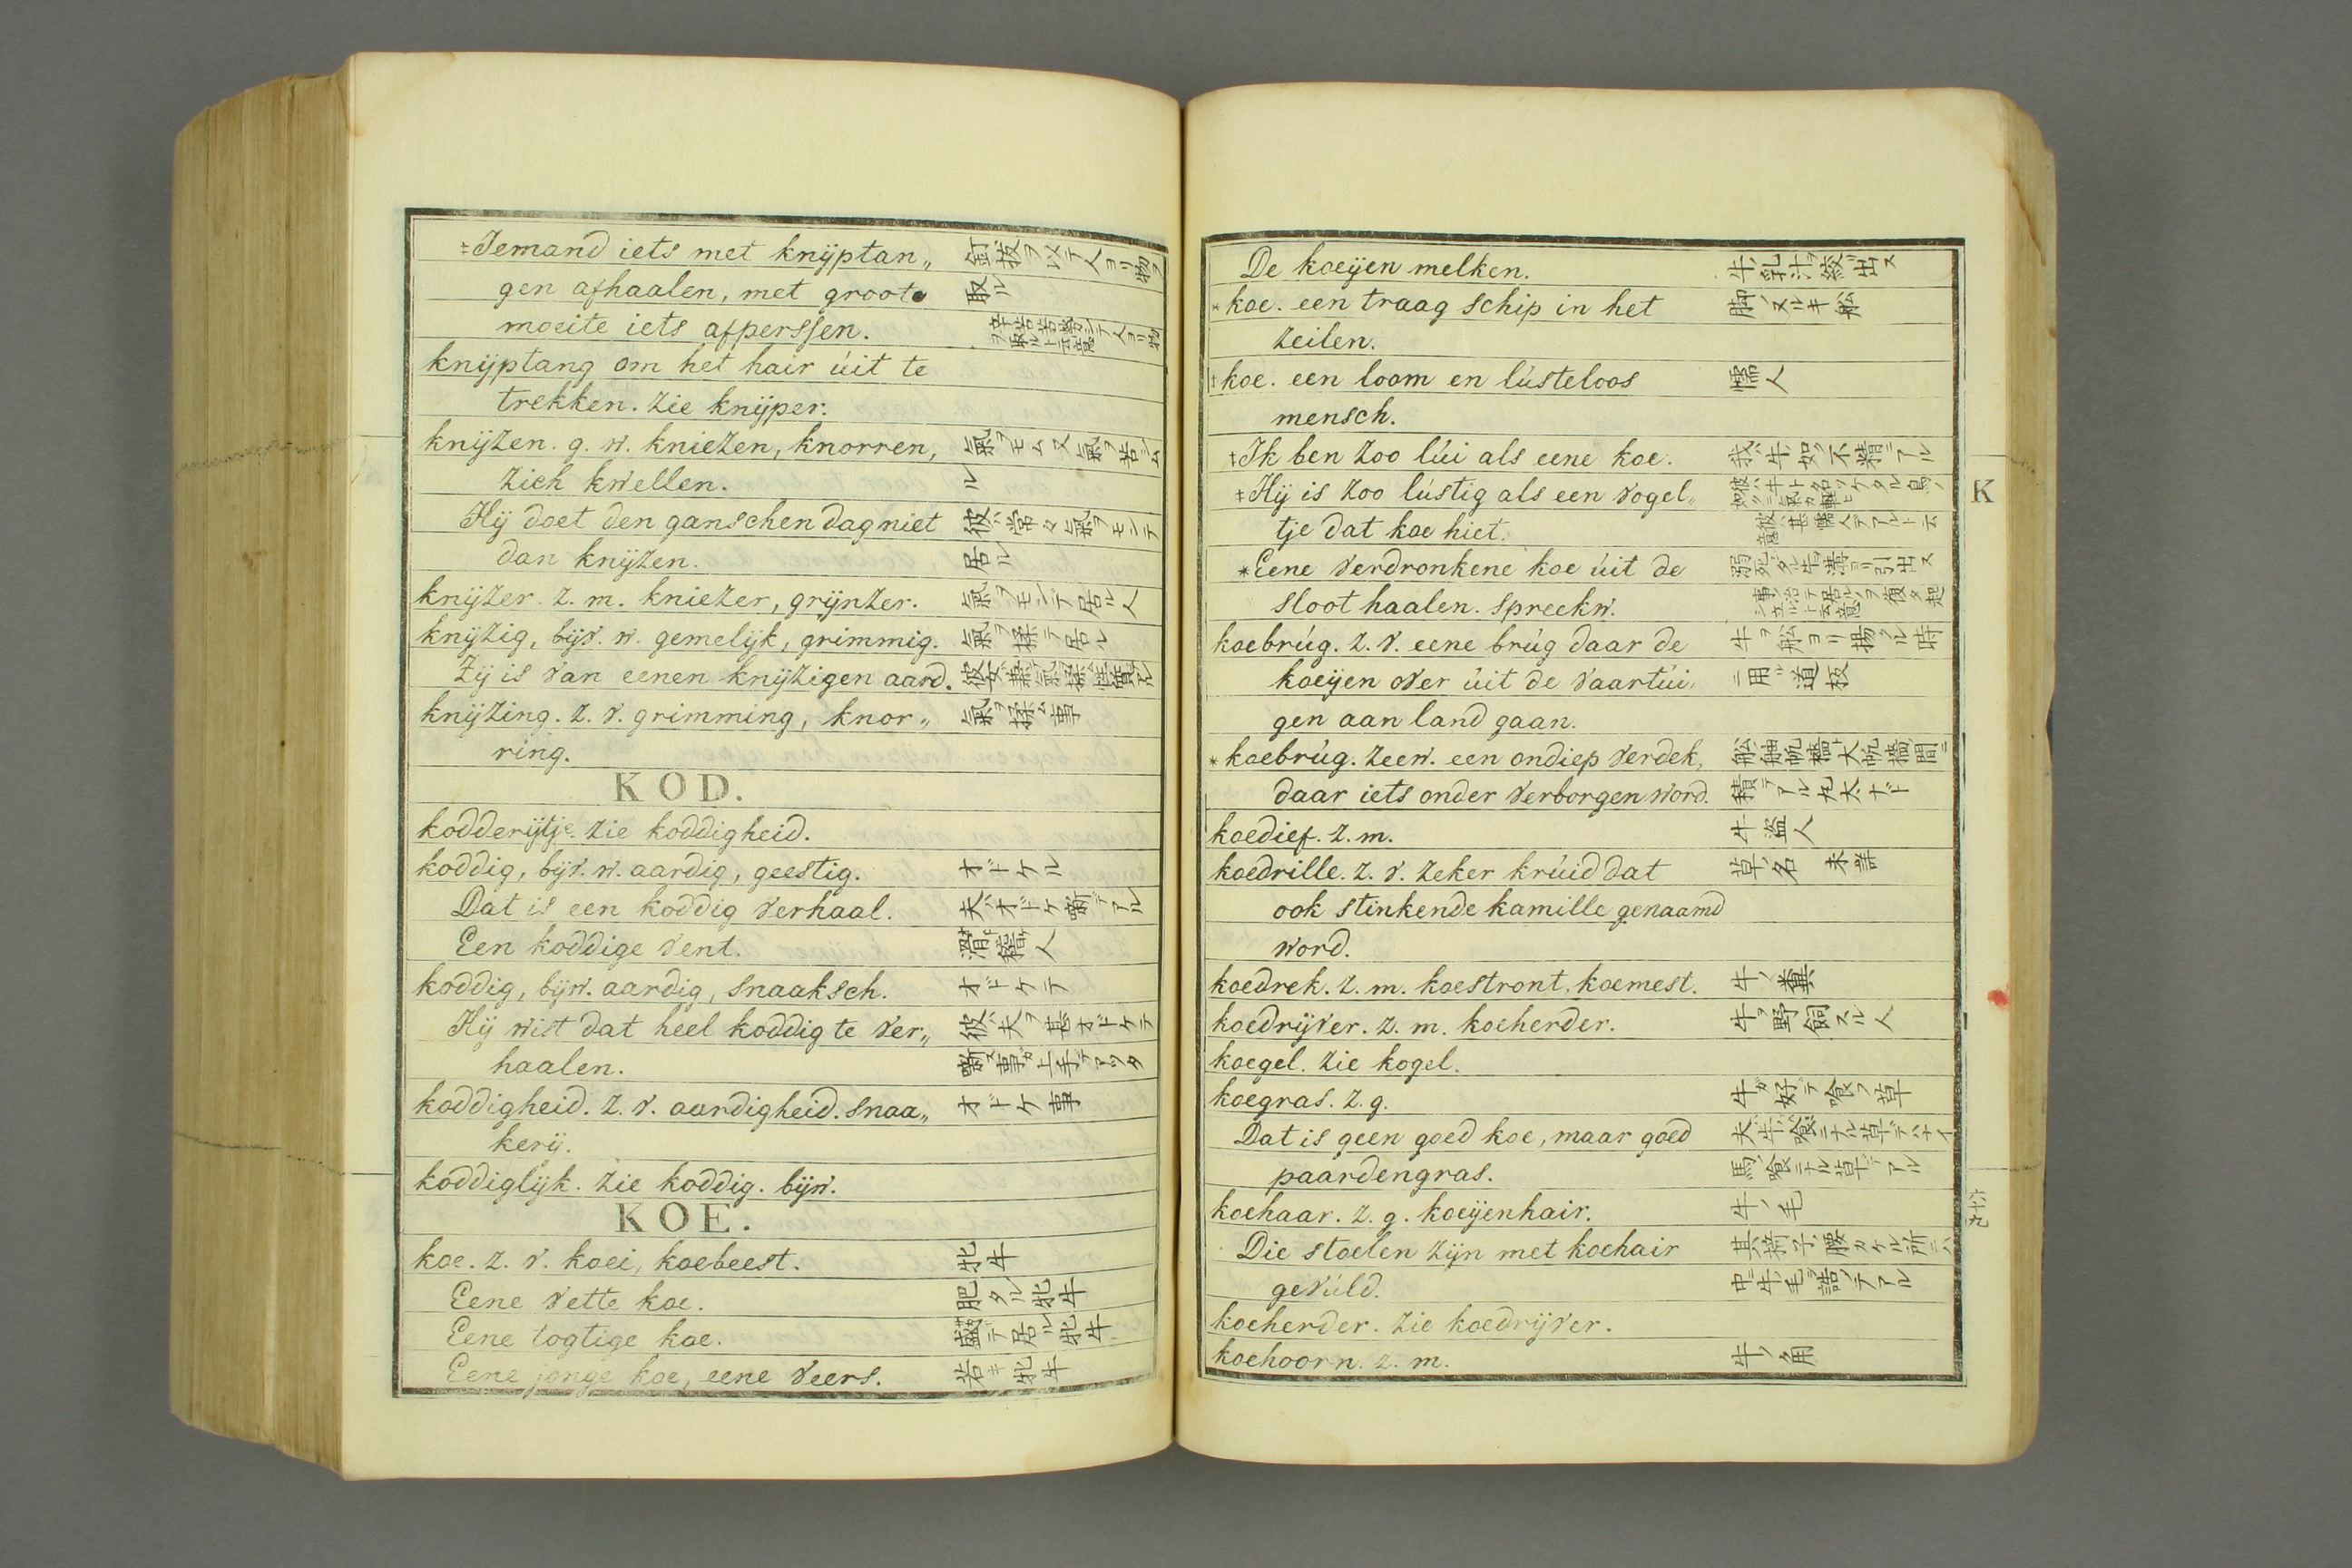 ‡Iemand iets met knijptan„ 釘抜ヲ以テ人ヨリ物ヲ
gen afhaalen, met groote 取ル
moeite iets afperssen.
knijptang om het hair úit te
trekken. zie knijper.
knijzen. g. w. kniezen, knorren, 氣ヲモム又氣ヲ苦シム
zich kwellen. ル
Hij doet den ganschen dag niet 彼ハ常々氣ヲモンデ
dan knijzen. 居ル
knijzer. z. m. kniezer, grijnzer. 氣ヲモンデ居ル人
knijzig, bijv. w. gemelijk, grimmig. 氣ヲ揉テ居ル
Zij is van eenen knijzigen aard.
knijzing. z. v. grimming, knor„ 氣ヲ揉ム事
ring.
KOD.
kodderijtje. zie koddigheid.
koddig, bijv. w. aardig, geestig. オドケル
Dat is een koddig verhaal. 夫ハオドケ噺デアル
Een koddige vent. 滑稽人
koddig, bijw. aardig, snaaksch. オドケテ
Hij wist dat heel koddig te ver„ 彼ハ夫ヲ甚オドケテ
haalen. 噺ス事ガ上手デアッタ
koddigheid. z. v. aardigheid. snaa„ オドケ事
kerij.
koddiglijk. zie koddig. bijw.
KOE.
koe. z. v. koei, koebeest. 牝牛
Eene vette koe. 肥タル牝牛
Eene togtige koe. 居ル牝牛
Eene jonge koe, eene veers. 若キ牝牛
De koeijen melken. 牛ノ乳汁ヲ絞出ス
*koe. een traag schip in het 脚ノヌルキ舩
zeilen.
‡koe. een loom en lústeloos 懦人
mensch.
‡Ik ben zoo lúi als eene koe. 我ハ牛ノ如ク不精デアル
‡Hij is zoo lústig als een vogel„
tje dat koe hiet.
*Eene verdronkene koe úit de 溺死タル牛ヲ溝ヨリ引出ス
sloot haalen. spreekw.
koebrúg. z. v. eene brúg daar de 牛ヲ舩ヨリ揚ル時
koeijen over úit de vaartúi„ ニ用ル道板
gen aan land gaan.
*koebrúg. zeew. een ondiep verdek,
daar iets onder verborgen word. 積テアル丸太ナド
koedief. z. m. 牛盗人
koedrille. z. v. zeker krúid dat 草ノ名 未詳
ook stinkende kamille genaamd
word.
koedrek. z. m. koestront. koemest. 牛ノ糞
koedrijver. z. m. koeherder. 牛ヲ野飼スル人
koegel. zie kogel.
koegras. z. g. 牛ガ好デ喰フ草
Dat is geen goed koe, maar goed 夫ハ牛ノ喰ニナル草デハナイ
paardengras. 馬ノ喰ニナル草デアル
koehaar. z. g. koeijenhair. 牛ノ毛
Die stoelen zijn met koehair 其椅子ノ腰カケル所ニハ
gevúld. 中ニ牛ノ毛ヲ詰テアル
koeherder. zie koedrijver.
koehoorn. z. m. 牛ノ角
K